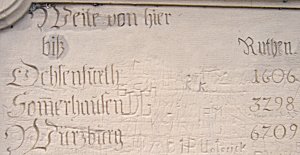 Weite von hier
biß Ruthen.
Ochsenfurth 1606
Somerhausen 3298
Würzburg 6709